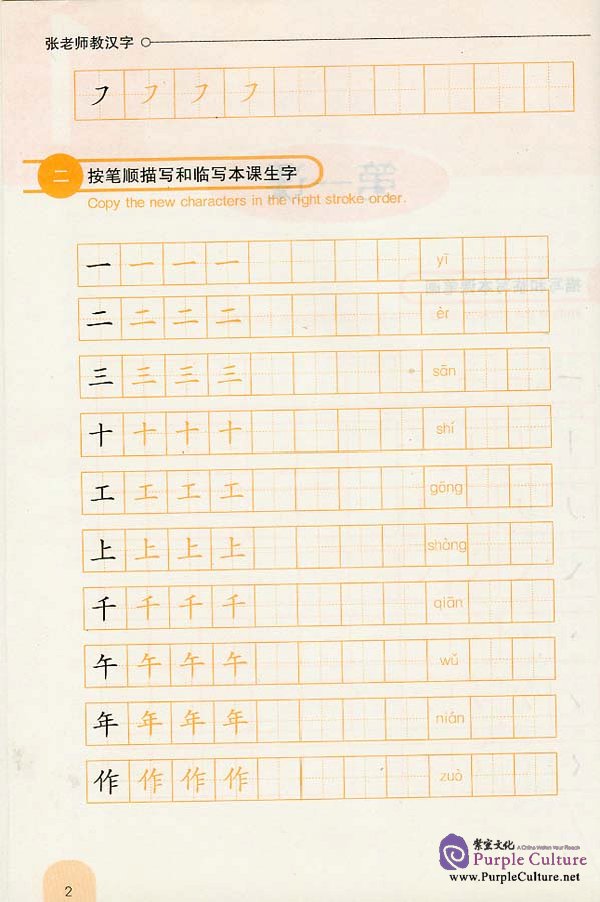 张老师教汉字
㇇ ㇇ ㇇ ㇇
二 按笔顺描写和临写本课生字
Copy the new characters in the right stroke order.
一 一 一 一 yī
二 二 二 二 èr
三 三 三 三 sān
十 十 十 十 shí
工 工 工 工 gōng
上 上 上 上 shàng
千 千 千 千 qiān
午 午 午 午 wǔ
年 年 年 年 nián
作 作 作 作 zuò
紫宝文化 A China Within Your Reach
Purple Culture
www.PurpleCulture.net
2